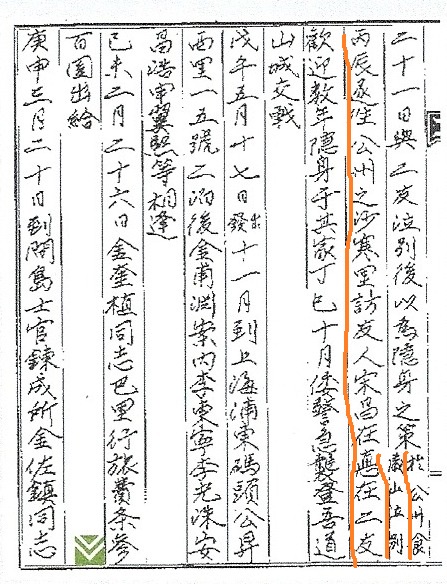 二十一日與二友泣別後以爲隱身之策於公州食
山泣別
丙辰遂往公州之沙寒里訪友人宋昌在應在二友
歡迎數年隱身于其家丁巳十月倭警急襲登吾道
山城交戰
戊午五月十七日發出十一月到上海浦東碼頭公昇
西里一五號二泊後金甫淵案內李東寧李光洙安
昌浩申翼熙等相逢
己未二月二十六日金奎植同志巴里行旅費条參
百圓出給
庚申三月二十日到間島士官鍊成所金佐鎮同志